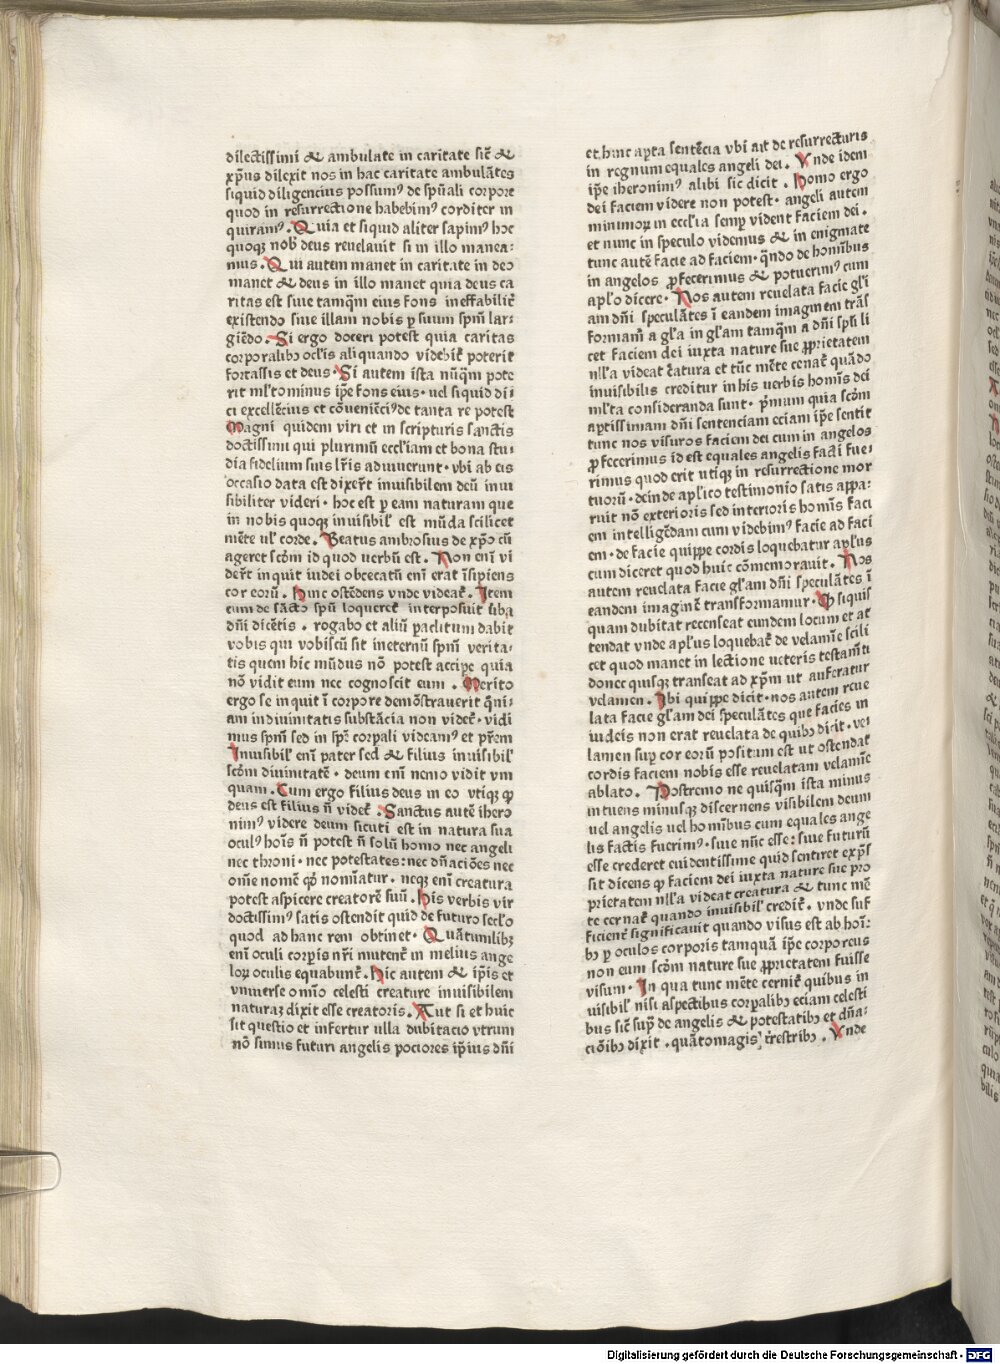 dilectissimi & ambulate in caritate sic̄ &
xp̄us dilexit nos in hac caritate ambulātes
siquid diligencius possumꝰ de sp̄uali corpore
quod in resurrectione habebimꝰ corditer in
quiramꝰ. Quia et siquid aliter sapimꝰ hoc
quoqꝫ nob̄ deus reuelauit si in illo manea:
mus. Qui autem manet in caritate in deo
manet & deus in illo manet quia deus ca
ritas est siue tamq̄m eius fons ineffabilit̄
existendo siue illam nobis ꝑ suum spm̄ lar:
giēdo. Si ergo doceri potest quia caritas
corporalibꝫ oc̄lis aliquando videbit̄ poterit
fortassis et deus. Si autem ista nūq̄m pote
rit ml̄to minus ip̄e fons eius. uel siquid di:
ci excellēcius et cōueniēciꝰ de tanta re potest
Magni quidem viri et in scripturis sanctis
doctissimi qui plurimū eccl̄iam et bona stu:
dia fidelium suis lr̄is adiuuerunt. vbi ab eis
occasio data est dixer̄t inuisibilem deū inui
sibiliter videri. hoc est ꝑ eam naturam que
in nobis quoqꝫ inuisibil̄ est mūda scilicet
mēte ul̓ corde. Beatus ambrosius de xp̄o cū
ageret scd̄m id quod uerbū est. Non eni᷒ vi
der̄t inquit iudei obcecatū eni᷒ erat īsipiens
cor eorū. hinc ostēdens vnde videat̄. Item
cum de sācto spū loqueret̄ interposuit ūba
dn̄i dicētis. rogabo et aliū paclitum dabit
vobis qui vobiscū sit ineternū spm̄ verita:
tis quem hic mūdus nō potest accipe quia
nō vidit eum nec cognoscit eum. Merito
ergo se inquit ī corpore demōstrauerit q̄ni:
am indiuinitatis substācia non videt̄. vidi
mus spm̄ sed in spē corpali videamꝰ et pr̄em
Inuisibil̄ eni᷒ pater sed & filius inuisibil̄
scd̄m diuinitatē. deum eni᷒ nemo vidit vm
quam. Cum ergo filius deus in eo vtiqꝫ qꝫ
deus est filius n̄ videt̄. Sanctus autē ihero
nimꝰ videre deum sicuti est in natura sua
oculꝰ hoīs n̄ potest n̄ solū homo nec angeli
nec throni. nec potestates: nec dn̄aciōes nec
om̄e nomē qd̄ nomīatur. neqꝫ eni᷒ creatura
potest aspicere creatorē suū. his verbis vir
doctissimꝰ satis ostendit quid de futuro secl̄o
quod ad hanc rem obtinet. Quātumlibꝫ
eni᷒ oculi corp̄is nr̄i mutent̄ in melius ange
loꝝ oculis equabunt̄. hic autem & ip̄is et
vniuerse omīo celesti creature inuisibilem
naturaꝫ dixit esse creatoris. Aut si et huic
sit questio et infertur ulla dubitacio vtrum
nō simus futuri angelis pociores ip̄ius dn̄i
et hinc apta sentēcia vbi ait de resurrecturis
in regnum equales angeli dei. Vnde idem
ip̄e iheronimꝰ alibi sic dicit. homo ergo
dei faciem videre non potest. angeli autem
minimoꝝ in eccl̄ia semp̄ vident faciem dei.
et nunc in speculo videmus & in enigmate
tunc autē facie ad faciem. q̄ndo de homībus
in angelos ꝓfecerimus & potuerimꝰ cum
apl̄o dicere. Nos autem reuelata facie gl̄i
am dn̄i speculātes ī eandem imaginem trās
formam̄ a gl̄a in gl̄am tamq̄m a dn̄i spū li
cet faciem dei iuxta nature sue ꝓprietatem
nll̄a videat c̄atura et tūc mēte cenat̄ quādo
inuisibilis creditur in his uerbis homīs dei
ml̄ta consideranda sunt. p̄mum quia scd̄m
aptissimam dn̄i sentenciam eciam ip̄e sentit
tunc nos visuros faciem dei cum in angelos
ꝓfecerimus id est equales angelis facti fue:
rimus quod erit utiqꝫ in resurrectione mor
tuorū. deinde apl̄ico testimonio satis appa:
ruit nō exterioris sed interioris homīs faci
em intelligēdam cum videbimꝰ facie ad faci
em. de facie quippe cordis loquebatur apl̄us
cum diceret quod huic cōmemorauit. Nos
autem reuelata facie gl̄am dn̄i speculātes ī
eandem imaginē transformamur. Qd̄ siquis
quam dubitat recenseat eundem locum et at
tendat vnde apl̄us loquebat̄ de velamīe scili
cet quod manet in lectione ueteris testam̄ti
donec quisqꝫ transeat ad xp̄m ut auferatur
velamen. Ibi quippe dicit. nos autem reue
lata facie gl̄am dei speculātes que facies in
iudeis non erat reuelata de quibꝫ dicit. ve:
lamen sup̄ cor eorū positum est ut ostendat
cordis faciem nobis esse reuelatam velamīe
ablato. Postremo ne quisq̄m ista minus
intuens minusqꝫ discernens visibilem deum
uel angelis uel homībus cum equales ange
lis factis fuerimꝰ. siue nūc esse: siue futurū
esse crederet euidentissime quid sentiret exp̄s
sit dicens ꝙ faciem dei iuxta nature sue pro
prietatem nll̄a videat creatura & tunc mē
te cernat̄ quando inuisibil̄ credit̄. vnde suf
ficient̄ significauit quando visus est ab hoī:
bꝫ ꝑ oculos corporis tamquā ip̄e corporeus
non eum scd̄m nature sue ꝓprietatem fuisse
visum. In qua tunc mēte cernit̄ quibus in
uisibil̄ nisi aspectibus corpalibꝫ eciam celesti
bus sic̄ sup̄ de angelis & potestatibꝫ et dn̄a:
ciōibꝫ dixit. quātomagis t̄restribꝫ. Vnde
Digitalisierung gefördert durch die Deutsche Forschungsgemeinschaft - DFG